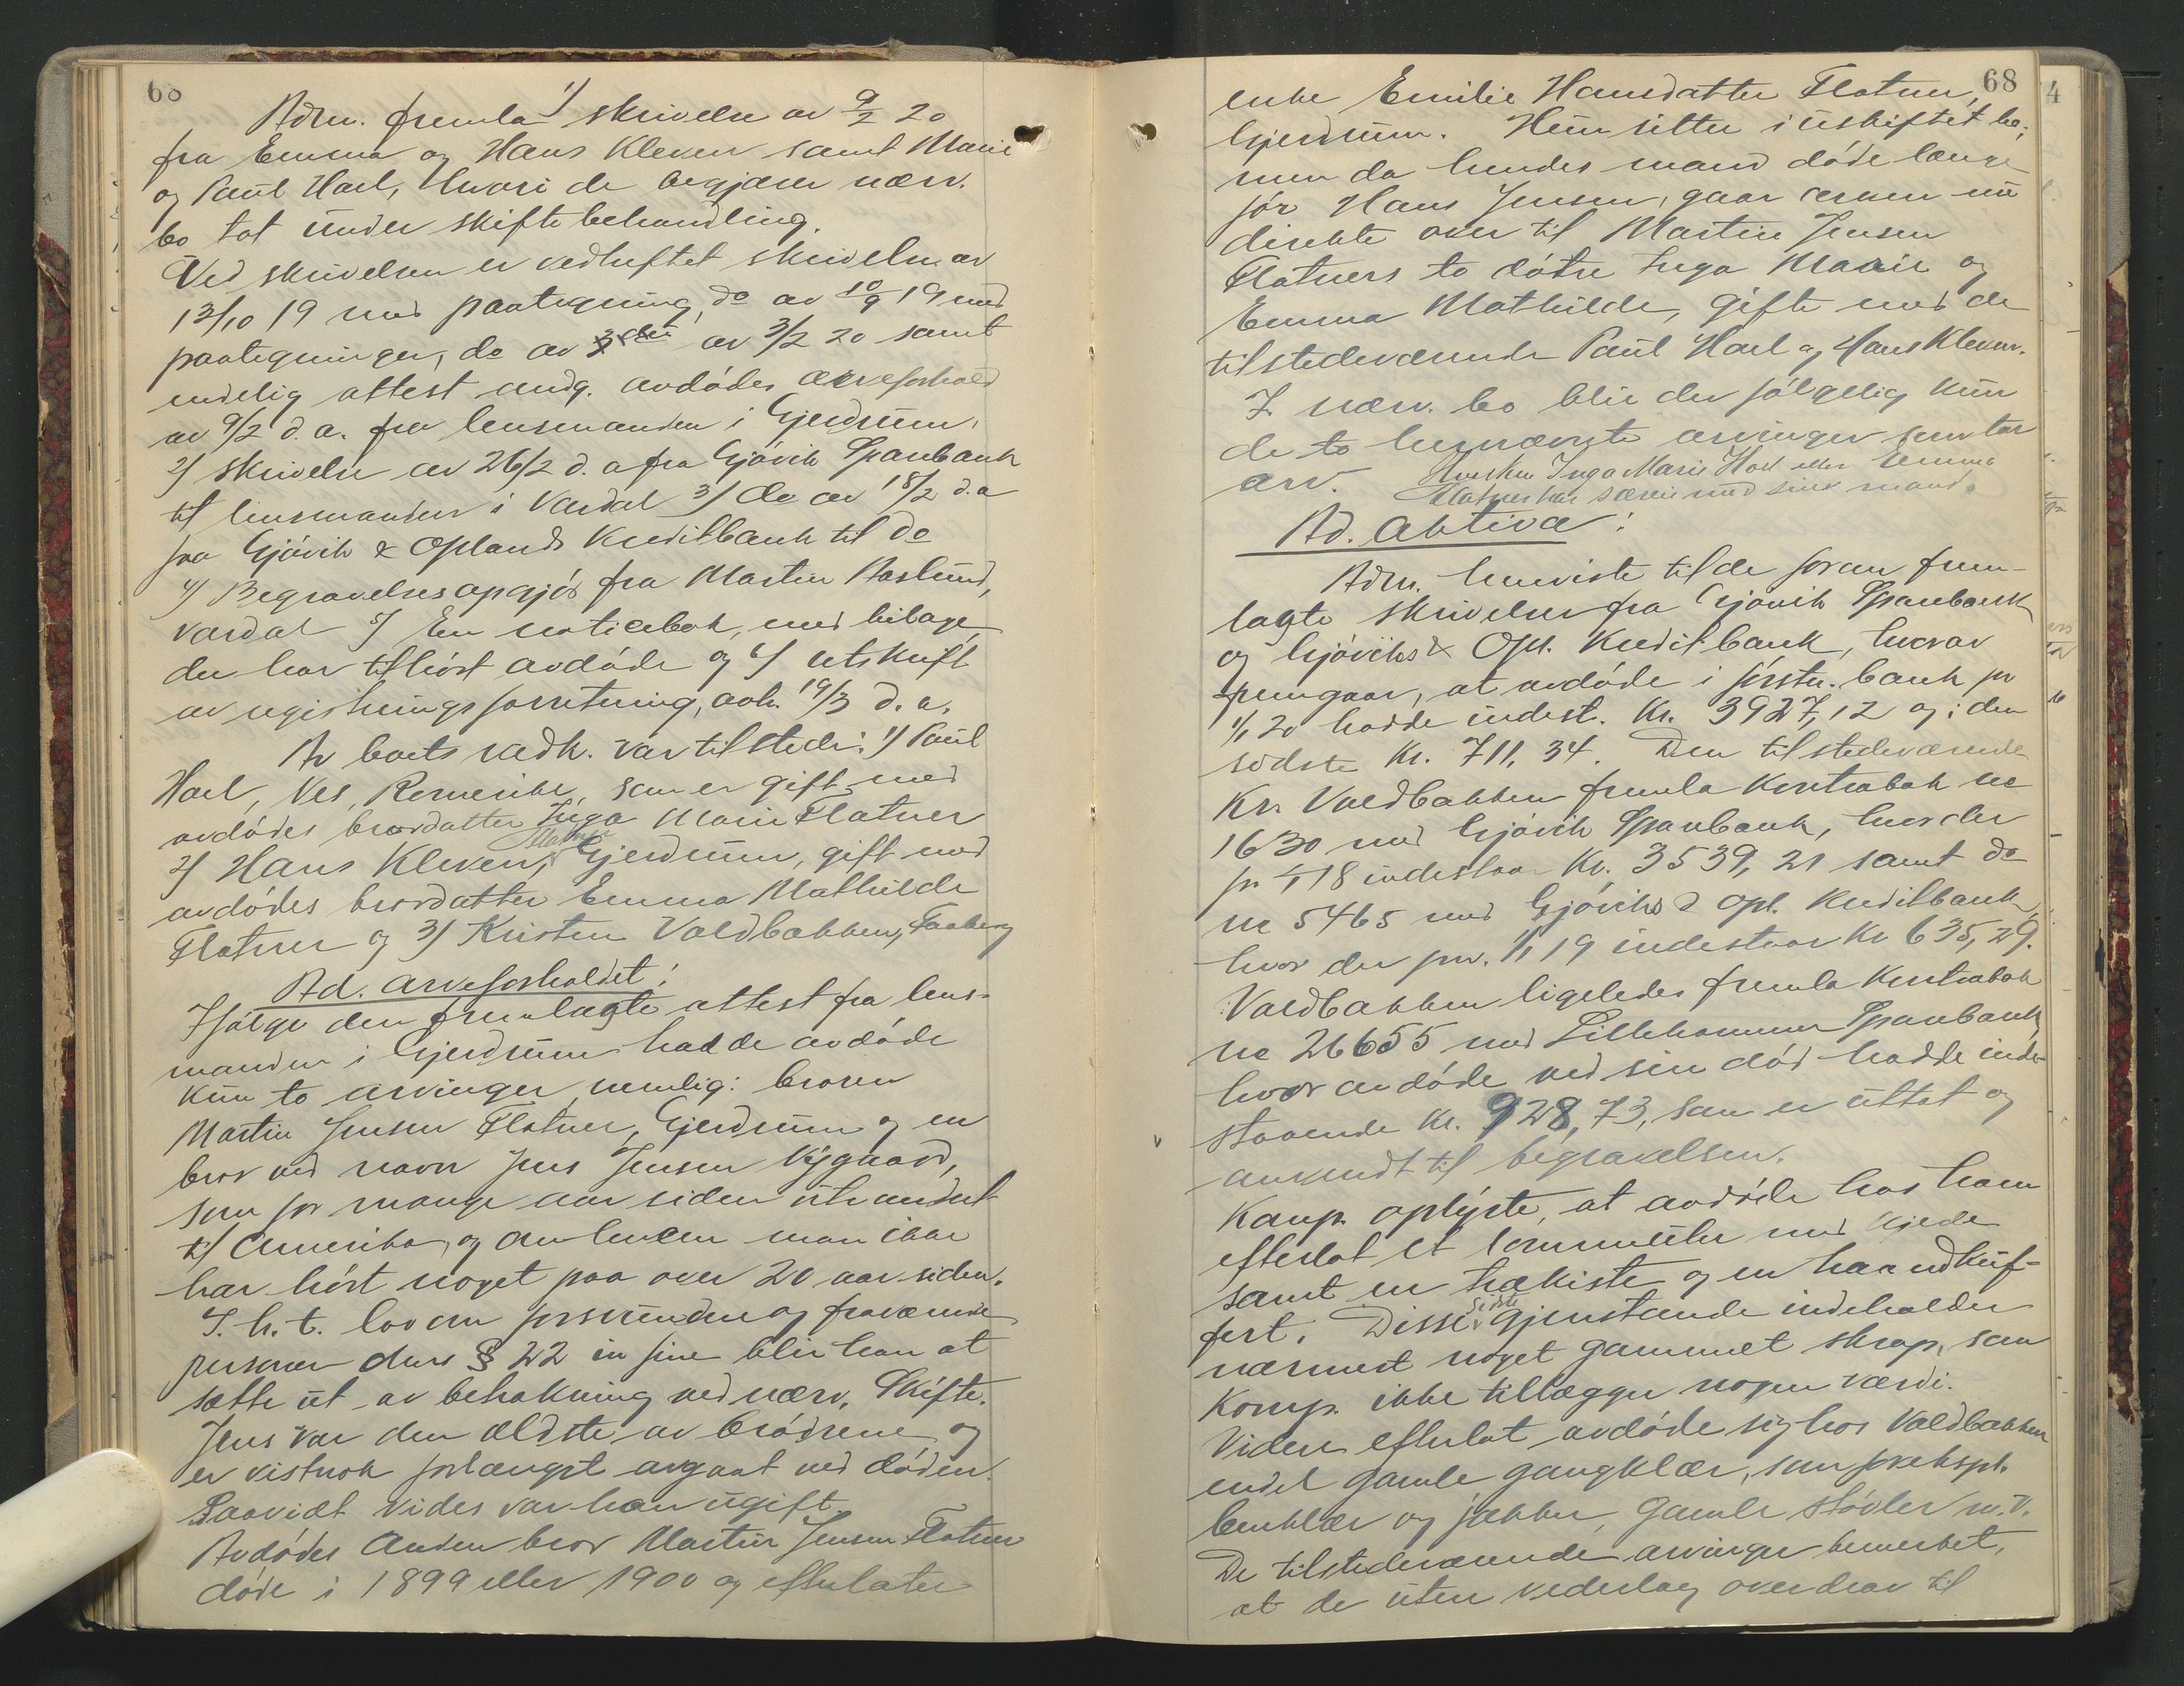 68
Adm. fremla 1/ skrivelse av 9/2 20
fra Emma og Hans Kleven samt Marie
og Paul Hoel, hvori de begjærer nærv.
bo tat under skiftebehandling.
Ved skrivelsen er vedheftet skrivelse av
13/10 19 med paategning, do av 10/9 19 med
paategninger, do av av 3/2 20 samt
endelig attest ang. avdødes arveforhold
av 9/2 d.a. fra lensmanden i Gjerdrum.
2/ skrivelse av 26/2 d.a fra Gjøvik Sparebank
til lensmanden i Vardal 3/ do av 18/2 d.a
fra Gjøvik & Oplands Kreditbank til do
4/ Begravelsesopgjør fra Martin Aaslund,
Vardal 5/ En noticebok, med bilage,
der har tilhørt avdøde og 6/ utskrift
av registreringsforretning, avh. 19/3 d.a.
Av boets vedk. var tilstede: 1/ Paul
Hoel, Nes, Romerike, som er gift med
avdødes brordatter Inga Marie Flatner
2/ Hans Kleven, Flatner Gjerdrum, gift med
avdødes brordatter Emma Mathilde
Flatner og 3/ Kristen Valdbakken, Faaberg
Ad. arveforholdet:
Ifølge den fremlagte attest fra lens-
manden i Gjerdrum hadde avdøde
kun to arvinger, nemlig: broren
Martin Jensen Flatner, Gjerdrum og en
bror ved navn Jens Jensen Nygaard,
som for mange aar siden utvandret
til Amerika, og om hvem man ikke
har hørt noget paa over 20 aar siden.
I.h.t. lov om forsvundne og fraværende
personer dens § 22 in fine blir han at
sætte ut av betraktning ved nærv. Skifte.
Jens var den ældste av brødrene og
er vistnok forlængst avgaat ved døden.
Saavidt vides var han ugift.
Avdødes anden bror Martin Jensen Flatner
døde i 1899 eller 1900 og efterlater
68
enke Emilie Hansdatter Flatner,
Gjerdrum. Hun sitter i uskiftet bo;
men da hendes mand døde længe
før Hans Jensen, gaar arven nu
direkte over til Martin Jensen
Flatners to døtre Inga Marie og
Emma Mathilde, gifte med de
tilstedeværende Paul Hoel og Hans Kleven.
I nærv. bo blir der følgelig kun
de to hernævnte arvinger som tar
arv. Hverken Inga Marie Hoel eller Emma
Flatner har særeie med sin mand.
Ad. aktiva:
Adm. henviste til de foran frem-
lagte skrivelser fra Gjøvik Sparebank
og Gjøviks & Opl. Kreditbank, hvorav
fremgaar, at avdøde i førstn. bank pr
1/1 20 hadde indest. kr. 3927,12 og i den
sidste kr. 711,34. Den tilstedeværende
Kr. Valdbakken fremla kontrabok nr
1630 med Gjøvik Sparebank, hvor der
pr 1/1 18 indestaar kr. 3539,21 samt do
nr 5465 med Gjøviks & Opl. Kreditbank
hvor der pr. 1/1 19 indestaar kr 635,29.
Valdbakken ligeledes fremla kontrabok
nr 26655 med Lillehammer Sparebank
hvor avdøde ved sin død hadde inde-
staaende kr. 928,73, som er uttat og
anvendt til begravelsen.
Komp. oplyste, at avdøde hos ham
efterlot et lommeuhr med kjede
samt en trækiste og en haandkuf-
fert. Disse sidste gjenstande indeholder
nærmest noget gammelt skrap, som
Komp. ikke tillægger nogen værdi.
Videre efterlot avdøde sig hos Valdbakken
endel gamle gangklær, som f.eks.
benklær og jakker, gamle støvler m.v.
De tilstedeværende arvinger bemerket,
at de uten vederlag overdrar til